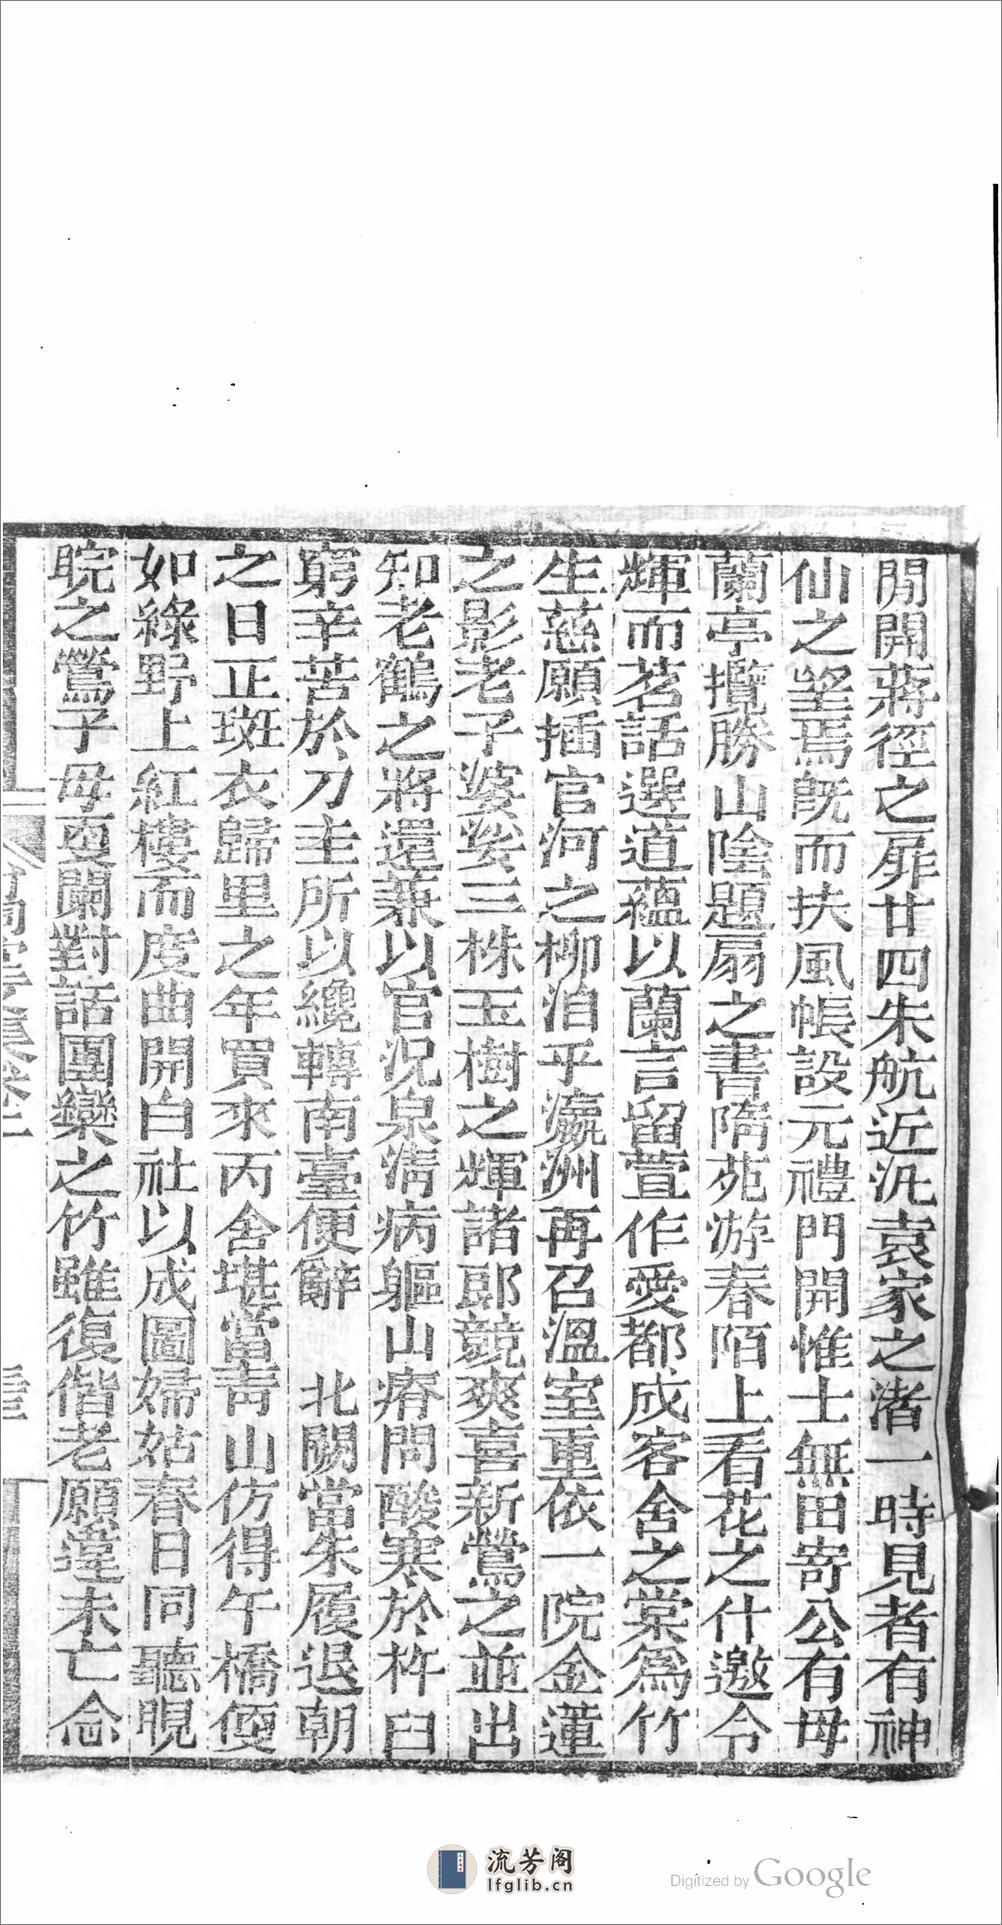 閒開蔣徑之扉廿四朱航近汎袁家之渚一時見者有神
仙之望焉旣而扶風帳設元禮門開惟士無田寄公有母
蘭亭攬勝山陰題扇之書隋苑游春陌上看花之什邀令
輝而茗話選道蘊以蘭言留萱作愛都成客舍之棠爲竹
生慈願插官河之柳泊乎瀛洲再召溫室重依一院金蓮
之影老子婆娑三株玉樹之輝諸郎競爽喜新鶯之並出
知老鶴之將還兼以官況泉淸病軀山瘠問酸寒於杵臼
窮辛苦於刀圭所以纔轉南臺便辭 北闕當朱履退朝
之日正斑衣歸里之年買來丙舍堪當靑山仿得午橋便
如綠野上紅樓而度曲開白社以成圖婦姑春日同聽睍
睆之鶯子母西闌對話團欒之竹雖復偕老願違未亡念
流芳阁
lfglib.cn
Digitized by Google